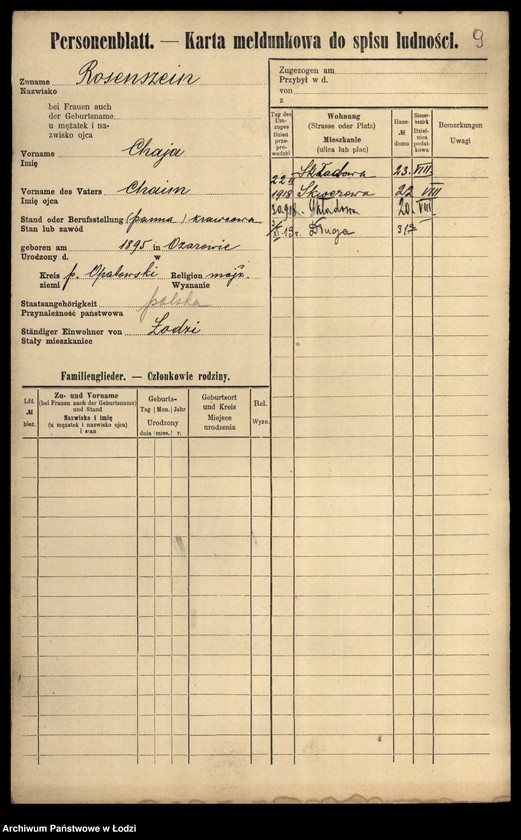 Personenblatt. — Karta meldunkowa do spisu ludności. 9
Zuname Rosenszein
Nazwisko
bei Frauen auch
der Geburtsname
u mężatek i na-
zwisko ojca
Vorname Chaja
Imię
Vorname des Vaters Chaim
Imię ojca
Stand oder Berufsstellung (panna) krawcowa
Stan lub zawód
geboren am 1895 in Ozarowie
Urodzony d. w
Kreis p. Opatowski Religion mojż.
ziemi Wyznanie
Staatsangehörigkeit polska
Przynależność państwowa
Ständiger Einwohner von Łodzi
Stały mieszkaniec
Familienglieder. — Członkowie rodziny.
Lfd. № bież.
Zu- und Vorname
(bei Frauen auch der Geburtsname)
und Stand
Nazwisko i imię
(u mężatek i nazwisko ojca)
i stan
Geburts-
Tag Mon. Jahr
Urodzony
dnia mies. r.
Geburtsort
und Kreis
Miejsce
urodzenia
Rel.
Wyzn.
Zugezogen am
Przybył w d.
von
z
Tag des
Um-
zuges
Dzień
prze-
prowadzki
Wohnung
(Strasse oder Platz)
Mieszkanie
(ulica lub plac)
Haus-
№
domu
Steuer-
bezirk
Dziel-
nica
podat-
kowa
Bemerkungen
Uwagi
Składowa 23. VIII.
1918 Skwerowa 22 VIII
30.9 18. Składowa 20. VIII.
Długa
Archiwum Państwowe w Łodzi